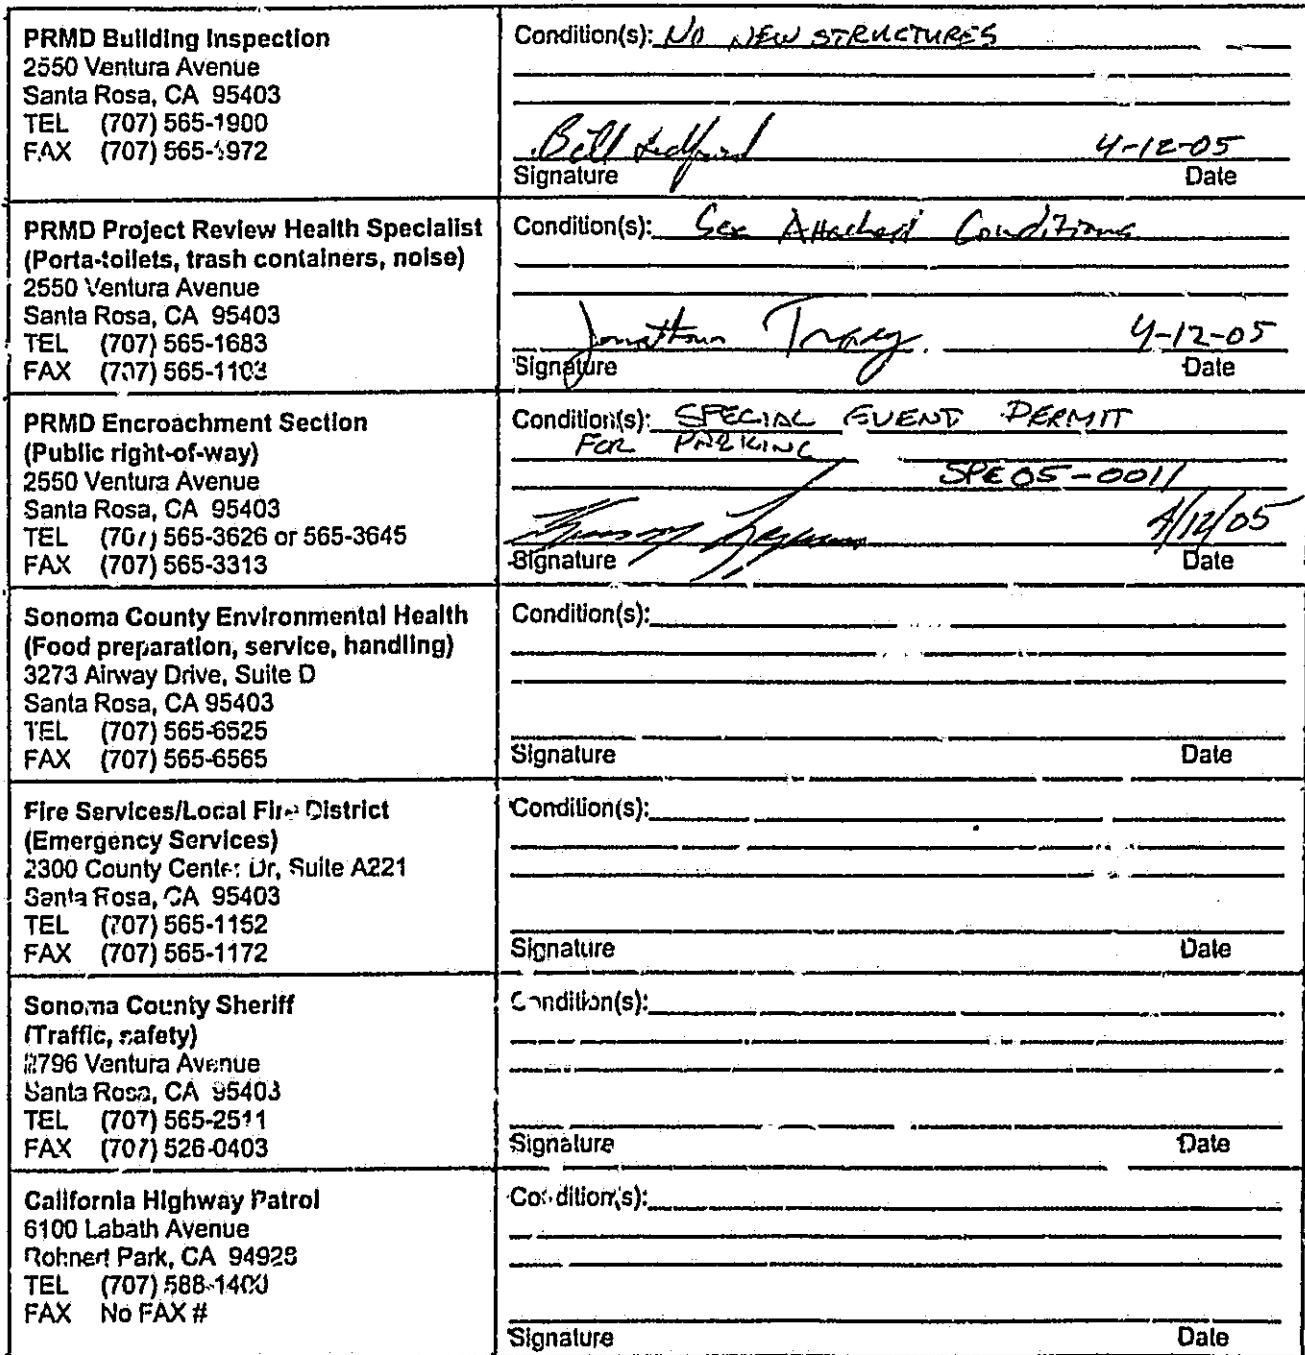 PRMD Building Inspection
2550 Ventura Avenue
Santa Rosa, CA 95403
TEL (707) 565-1900
FAX (707) 565-1972
Condition(s): NO NEW STRUCTURES
Bill Ledford 4-12-05
Signature Date
PRMD Project Review Health Specialist
(Porta-toilets, trash containers, noise)
2550 Ventura Avenue
Santa Rosa, CA 95403
TEL (707) 565-1683
FAX (707) 565-1103
Condition(s): See Attached Conditions
Jonathan Tracy 4-12-05
Signature Date
PRMD Encroachment Section
(Public right-of-way)
2550 Ventura Avenue
Santa Rosa, CA 95403
TEL (707) 565-3626 or 565-3645
FAX (707) 565-3313
Condition(s): SPECIAL EVENT PERMIT
FOR PARKING
SPE05-0011
4/12/05
Signature Date
Sonoma County Environmental Health
(Food preparation, service, handling)
3273 Airway Drive, Suite D
Santa Rosa, CA 95403
TEL (707) 565-6525
FAX (707) 565-6565
Condition(s):
Signature Date
Fire Services/Local Fire District
(Emergency Services)
2300 County Center Dr, Suite A221
Santa Rosa, CA 95403
TEL (707) 565-1152
FAX (707) 565-1172
Condition(s):
Signature Date
Sonoma County Sheriff
(Traffic, safety)
2796 Ventura Avenue
Santa Rosa, CA 95403
TEL (707) 565-2511
FAX (707) 526-0403
Condition(s):
Signature Date
California Highway Patrol
6100 Labath Avenue
Rohnert Park, CA 94928
TEL (707) 588-1400
FAX No FAX #
Condition(s):
Signature Date